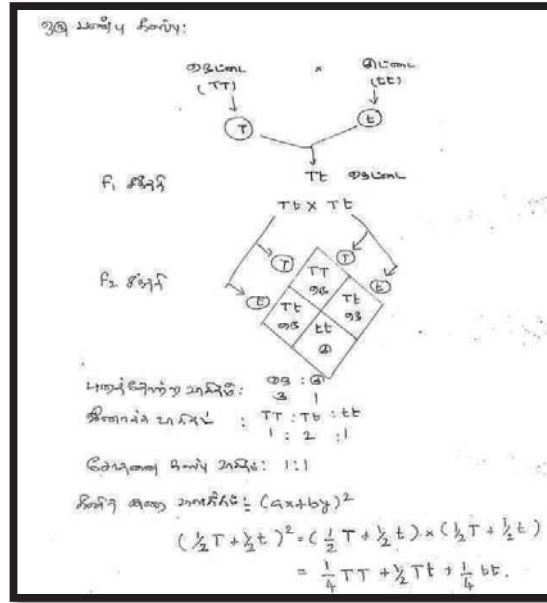 ஒரு பண்பு கலப்பு:
நெட்டை × குட்டை
(TT) (tt)
T t
Tt நெட்டை
F₁ சந்ததி
Tt X Tt
T T
TT
நெ
t t
F₂ சந்ததி
Tt Tt
நெ நெ
tt
கு
புறத்தோற்ற விகிதம்: நெ : கு
3 1
ஜீனாக்க விகிதம் : TT : Tt : tt
1 : 2 : 1
சோதனை கலப்பு விகிதம்: 1:1
கணித முறை : (ax+by)²
(½T+½t)² = (½T+½t) × (½T+½t)
= ¼TT + ½Tt + ¼tt.